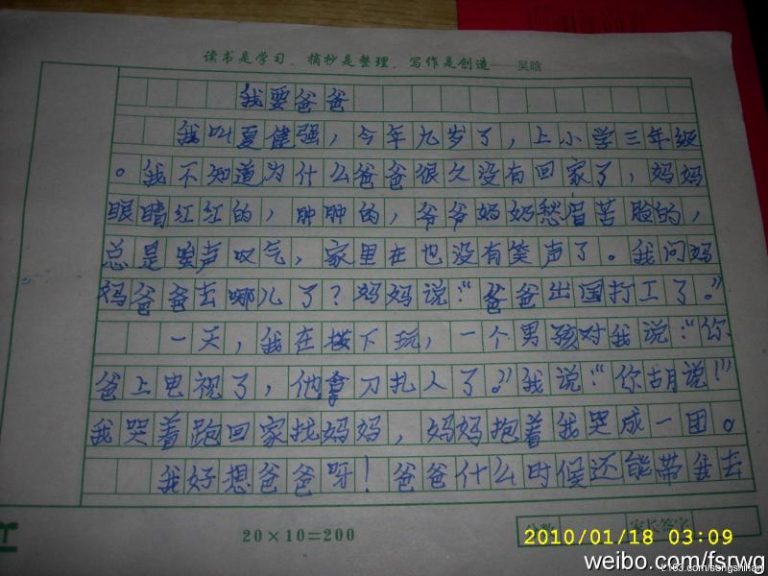 读书是学习、摘抄是整理、写作是创造 吴晗
我要爸爸
我叫夏健强，今年九岁了，上小学三年级
。我不知道为什么爸爸很久没有回家了，妈妈
眼睛红红的，肿肿的，爷爷妈妈愁眉苦脸的，
总是唉声叹气，家里在也没有笑声了。我问妈
妈爸爸去哪儿了？妈妈说：“爸爸出国打工了。”
一天，我在楼下玩，一个男孩对我说：“你
爸上电视了，他拿刀扎人了。”我说：“你胡说！”
我哭着跑回家找妈妈，妈妈抱着我哭成一团。
我好想爸爸呀！爸爸什么时候还能带我去
20×10=200
分数
家长签字
2010/01/18 03:09
weibo.com/fsrwg